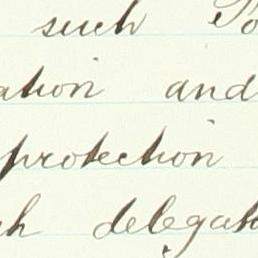 such Po
ation and
protection
ch delegat